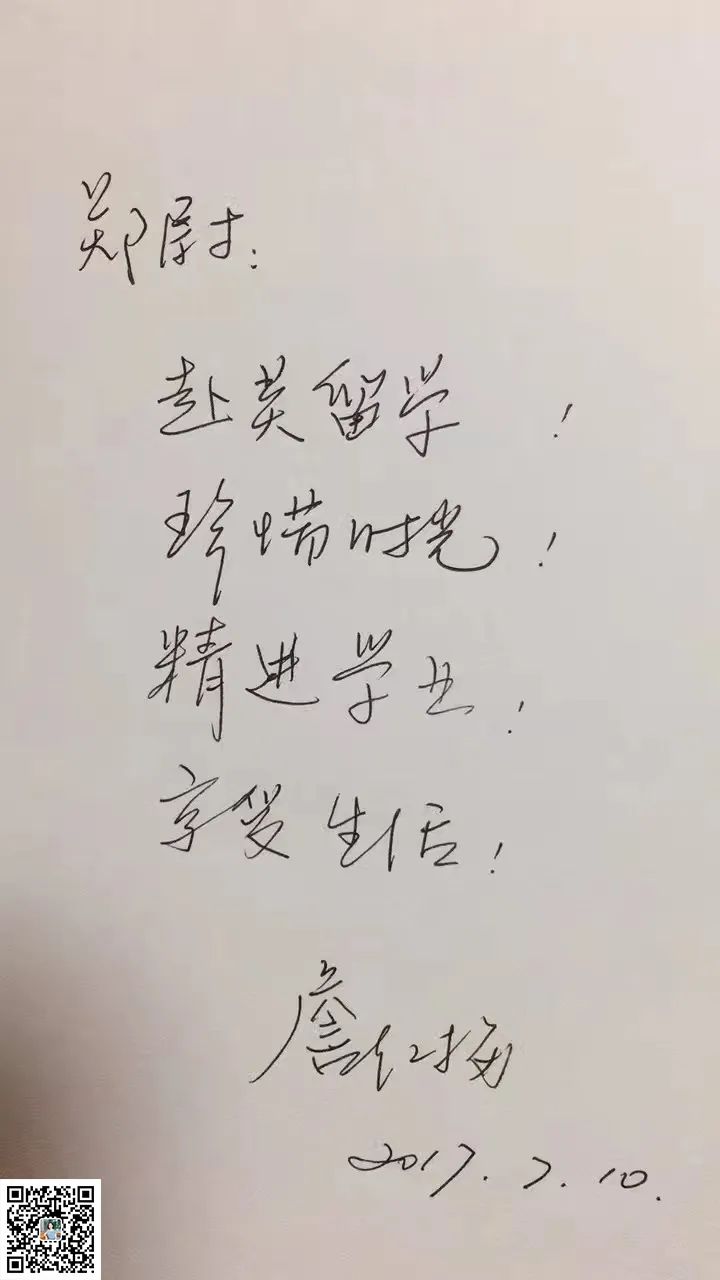 郑尉：
赴英留学！
珍惜时光！
精进学业！
享受生活！
詹红梅
2017.7.10.